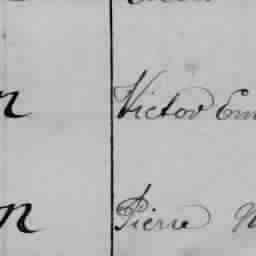 n Victor Em
n Pierre N